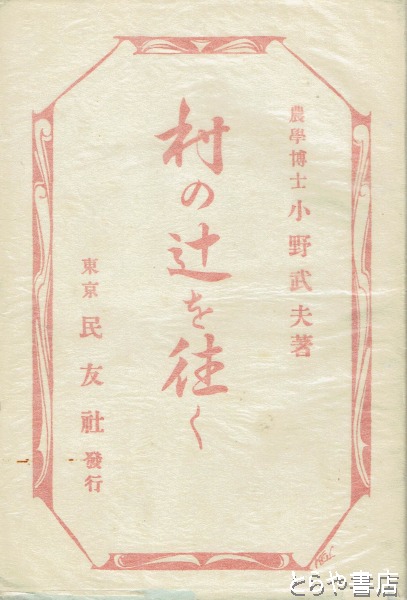 農學博士 小野武夫著
村の辻を往く
東京 民友社發行
とらや書店